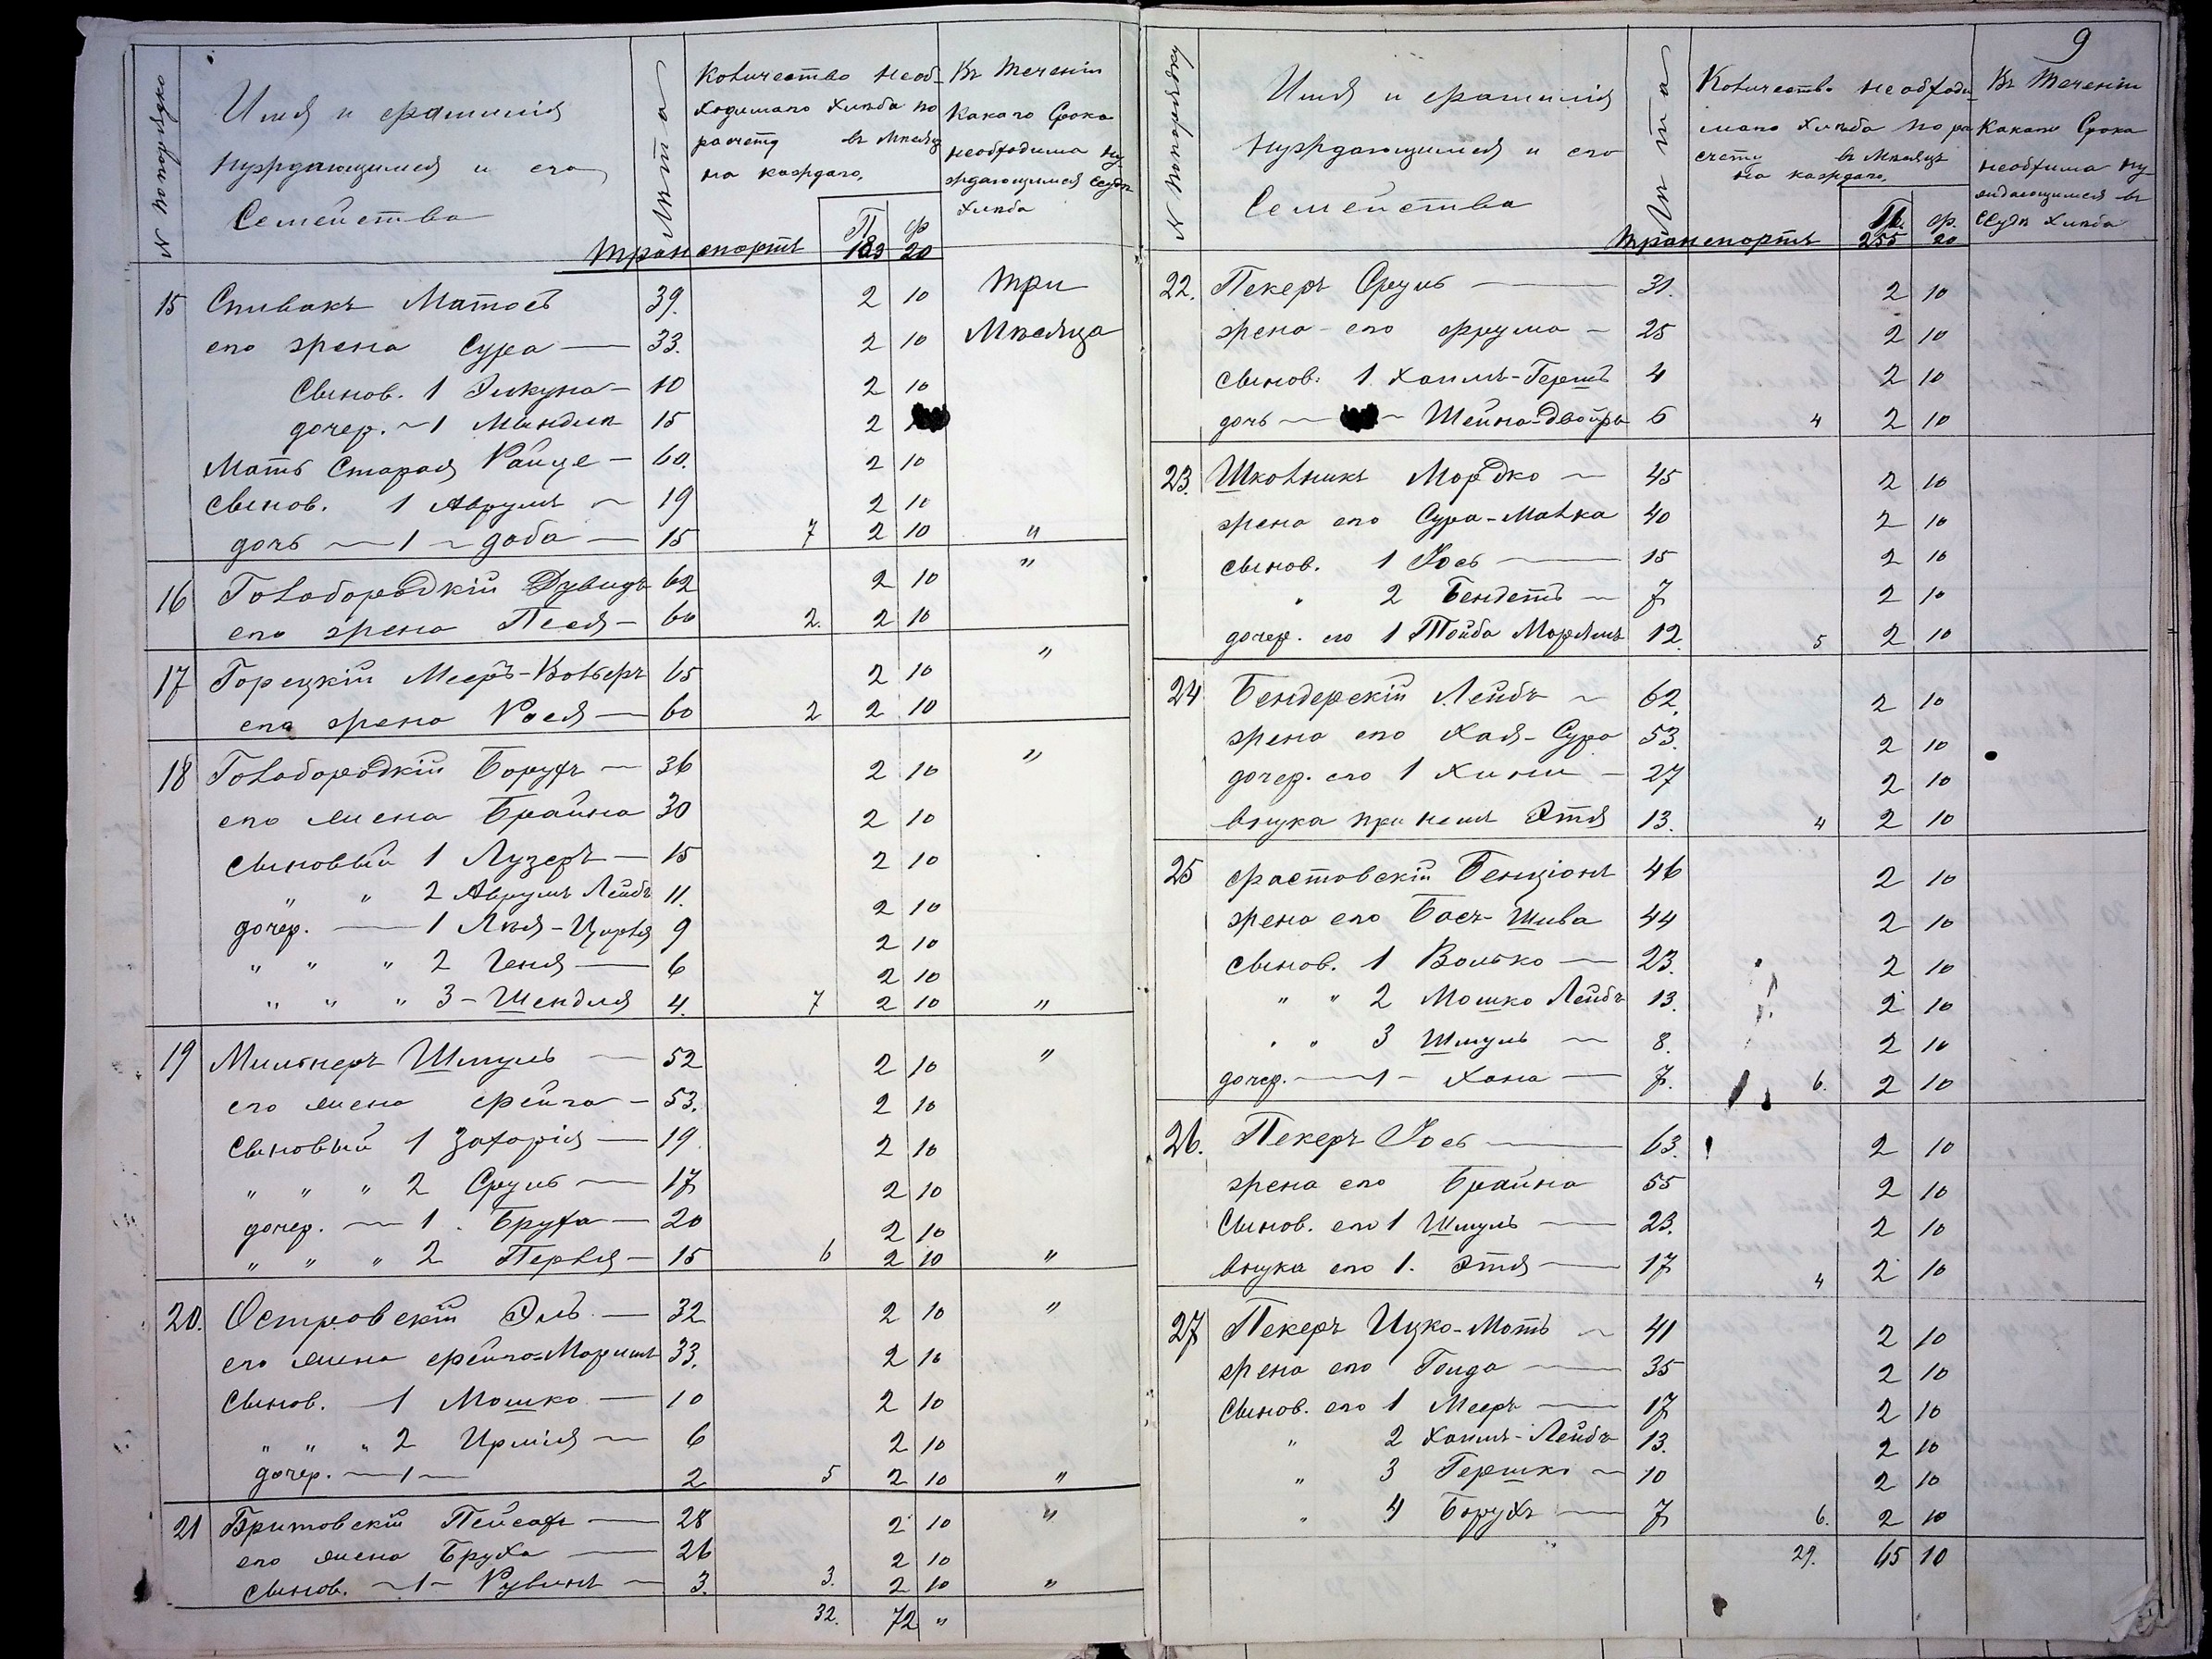 N попорядку
Имя и фамилія
нуждающимся и его
Семейства
Лѣта
Количество необ-
ходимаго хлѣба по
расчету въ мѣсяцъ
на каждаго.
Въ теченіи
Какаго Срока
необходима ну-
ждающимся ссудѣ
хлѣба
П ф
Транспортъ 183 20
15 Спивакъ Матось 39. 2 10 три
его жена Сура — 33. 2 10 Мѣсяца
Сынов. 1 Элкуна — 10 2 10
дочер. ~ 1 Миндля 15 2
Мать Старая Райце — 60. 2 10
Сынов. 1 Аврумъ ~ 19 2 10
дочь — 1 ~ доба — 15 7 2 10 "
16 Голобородкій Дувидъ 62 2 10 "
его жена Песя — 60 2. 2 10
17 Горецкій Мееръ-Вольеръ 65 2 10 "
его жена Рося — 60 2 2 10
18 Голобородкій Борухъ — 36 2 10 "
его жена Брайна 30 2 10
Сыновый 1 Лузеръ — 15 2 10
" " 2 Аврумъ Лейбъ 11. 2 10
дочер. — 1 Лѣя-Цирля 9 2 10
" " " 2 Геня — 6 2 10
" " " 3 - Шендля 4. 7 2 10 "
19 Мильнеръ Шмуль — 52 2 10 "
его жена Фейга — 53. 2 10
Сыновый 1 Захарія — 19. 2 10
" " " 2 Сруль — 17 2 10
дочер. — 1. Бруха — 20 2 10
" " " 2 Перля — 15 6 2 10 "
20. Островскій Эль — 32 2 10 "
его жена Фейга-Маримъ 33. 2 10
Сынов. — 1 Мошко — 10 2 10
" " " 2 Ирмія ~ 6 2 10
дочер. — 1 — 2 5 2 10 "
21 Бритовскій Пейсахъ — 28 2 10 "
его жена Бруха — 26 2 10
Сынов. ~ 1 ~ Рувинъ ~ 3. 3. 2 10 "
32. 72 "
9
N попорядку
Имя и фамилія
нуждающимся и его
Семейства
Лѣта
Количество необходи-
маго хлѣба по ра
счету въ мѣсяцъ
на каждаго.
Въ теченіи
Какаго Срока
необхима ну
ждающимся въ
Ссудѣ хлѣба
П. ф.
Транспортъ 255 20
22. Пекеръ Сруль — 31. 2 10
жена его Фрума — 25 2 10
Сынов. 1. Хаимъ-Гершъ 4 2 10
дочь — ~ Шейна-Двойра 6 4 2 10
23. Школьникъ Мордко ~ 45 2 10
жена его Сура-Малка 40 2 10
Сынов. 1 Іось — 15 2 10
" 2 Бендетъ — 7 2 10
дочер. его 1 Тойба Марямъ 12. 5 2 10
24 Бендерскій Лейбъ ~ 62. 2 10
жена его Хая-Сура 53. 2 10
дочер. его 1 Хини — 27 2 10
внука при немъ Этя 13. 4 2 10
25 Фастовскій Бенціонъ 46 2 10
жена его Бась-Шива 44 2 10
Сынов. 1 Волько — 23. 2 10
" " 2 Мошко Лейбъ 13. 2 10
" " 3 Шмуль ~ 8. 2 10
дочер. — 1 — Хана — 7. 6. 2 10
26. Пекеръ Іось — 63. 2 10
жена его Брайна 55 2 10
Сынов. его 1 Шмуль — 23. 2 10
внука его 1. Этя — 17 4 2 10
27 Пекеръ Ицко-Моть ~ 41 2 10
жена его Голда — 35 2 10
Сынов. его 1 Мееръ — 17 2 10
" 2 Хаимъ-Лейбъ 13. 2 10
" 3 Гершко ~ 10 2 10
" 4 Борухъ — 7 6. 2 10
29. 65 10